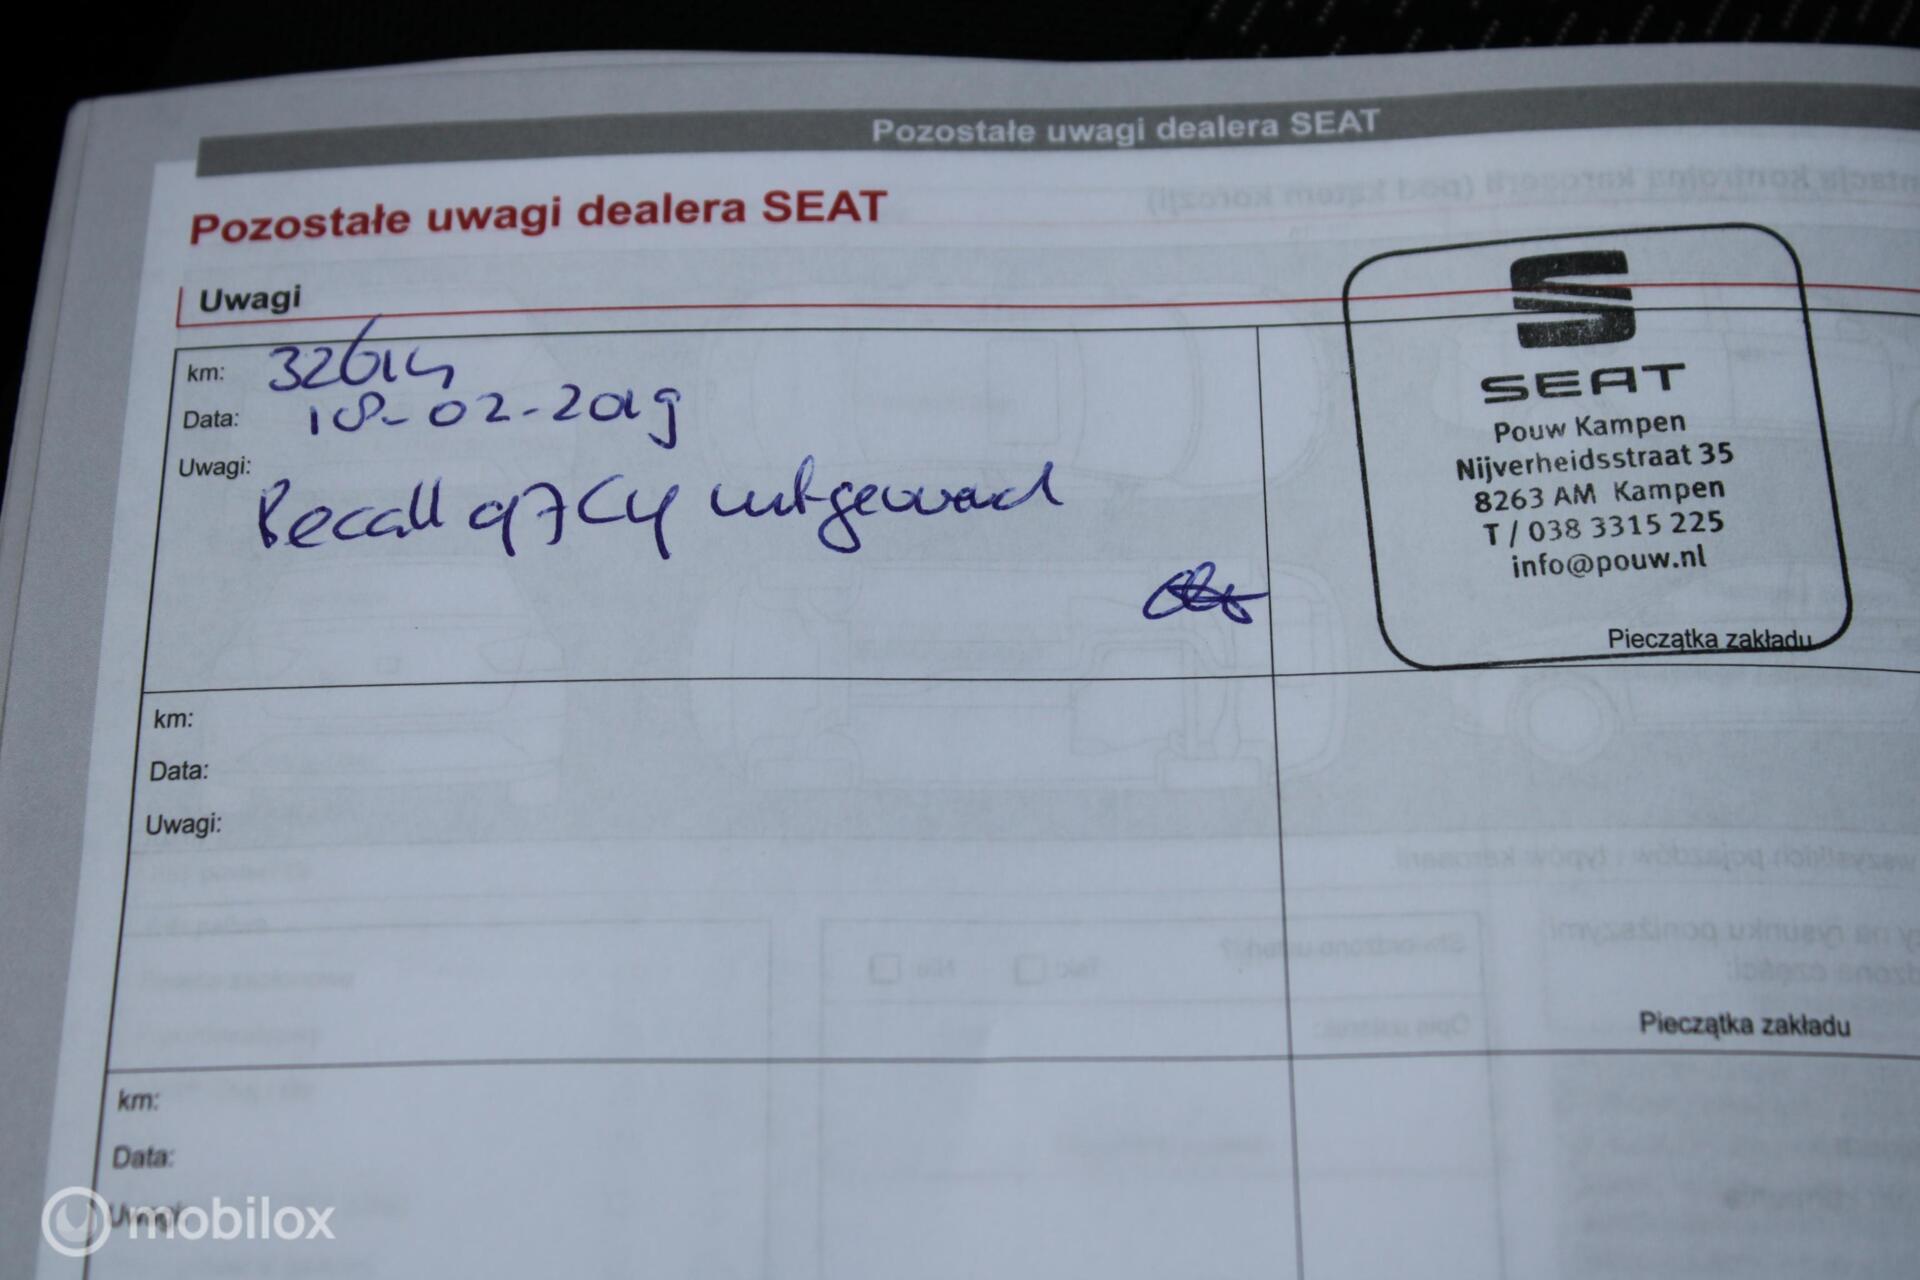 Pozostałe uwagi dealera SEAT
Pozostałe uwagi dealera SEAT
Uwagi
km: 32614
Data: 18-02-2019
Uwagi:
Recall 97CY uitgevoerd
SEAT
Pouw Kampen
Nijverheidsstraat 35
8263 AM Kampen
T / 038 3315 225
info@pouw.nl
Pieczątka zakładu
km:
Data:
Uwagi:
Pieczątka zakładu
km:
Data:
Uwagi:
mobilox